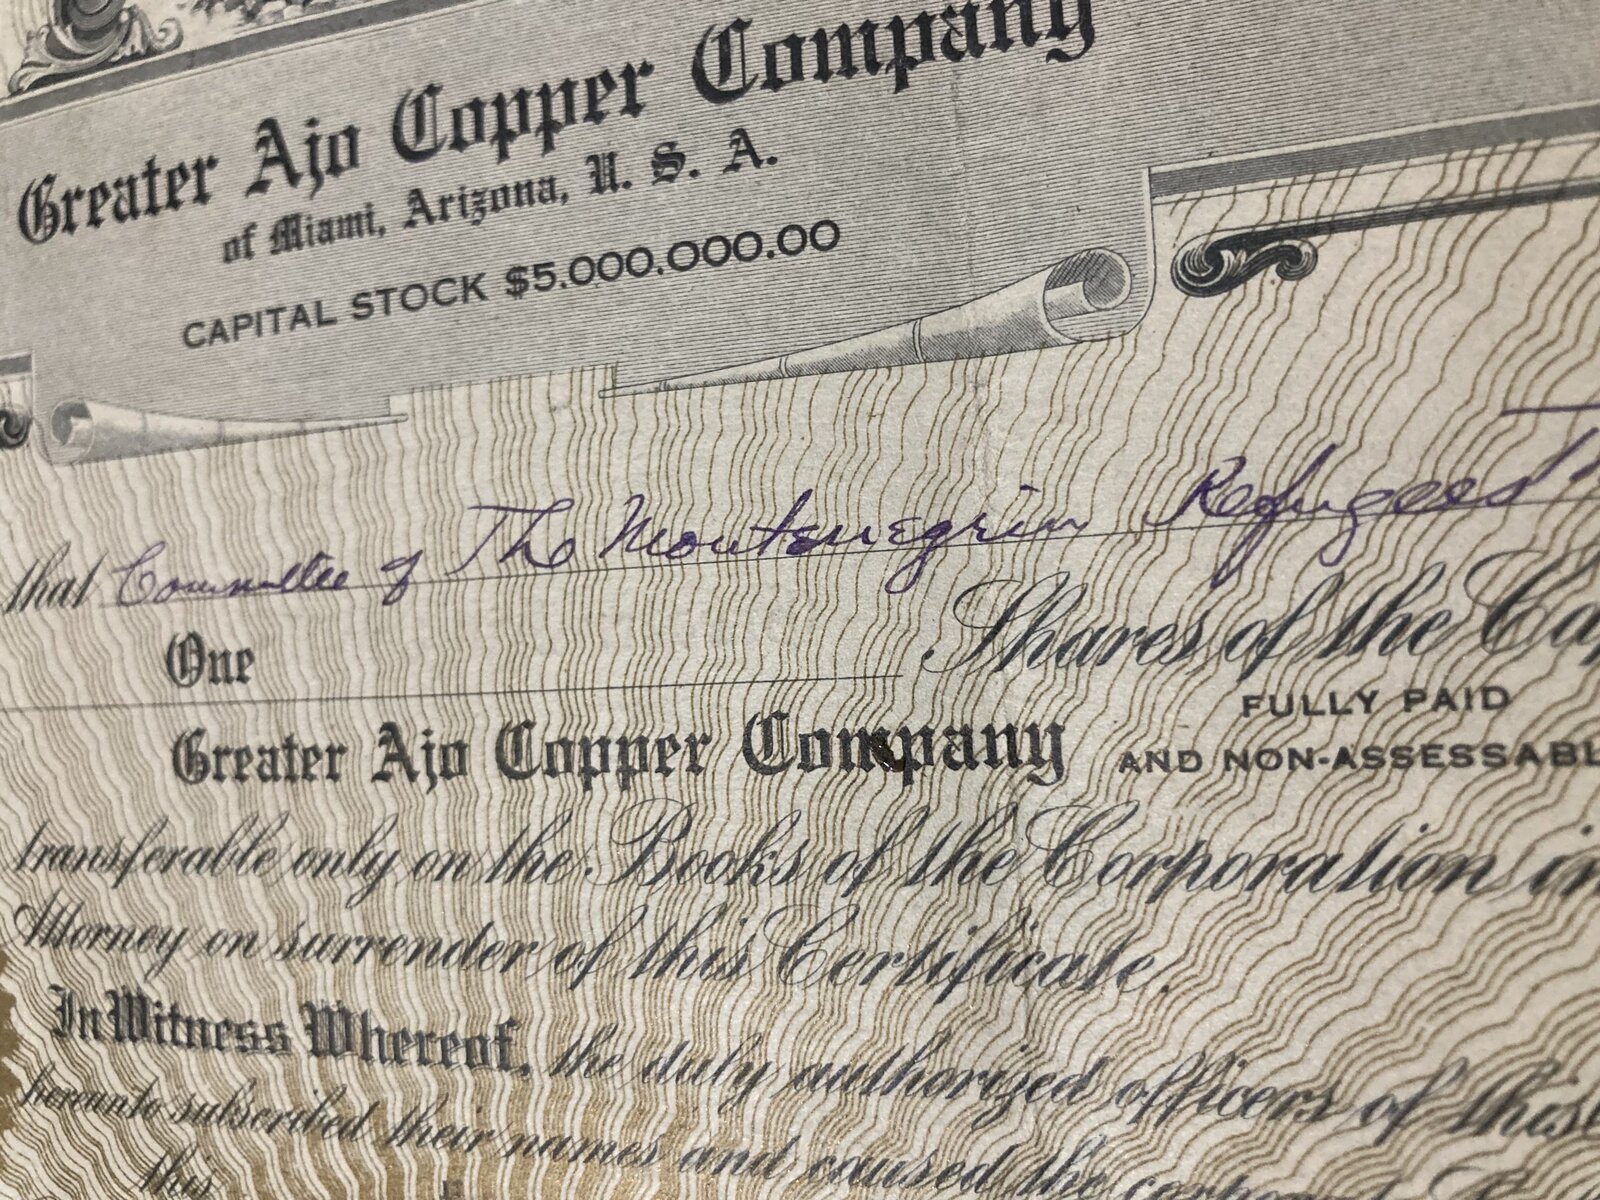 Greater Ajo Copper Company
of Miami, Arizona, U. S. A.
CAPITAL STOCK $5.000.000.00
that Committee of The Montenegrin Refugees'
One Shares of the Ca
Greater Ajo Copper Company FULLY PAID
AND NON-ASSESSABL
transferable only on the Books of the Corporation in
Attorney on surrender of this Certificate.
In Witness Whereof, the duly authorized officers of this
hereunto subscribed their names and caused the
this